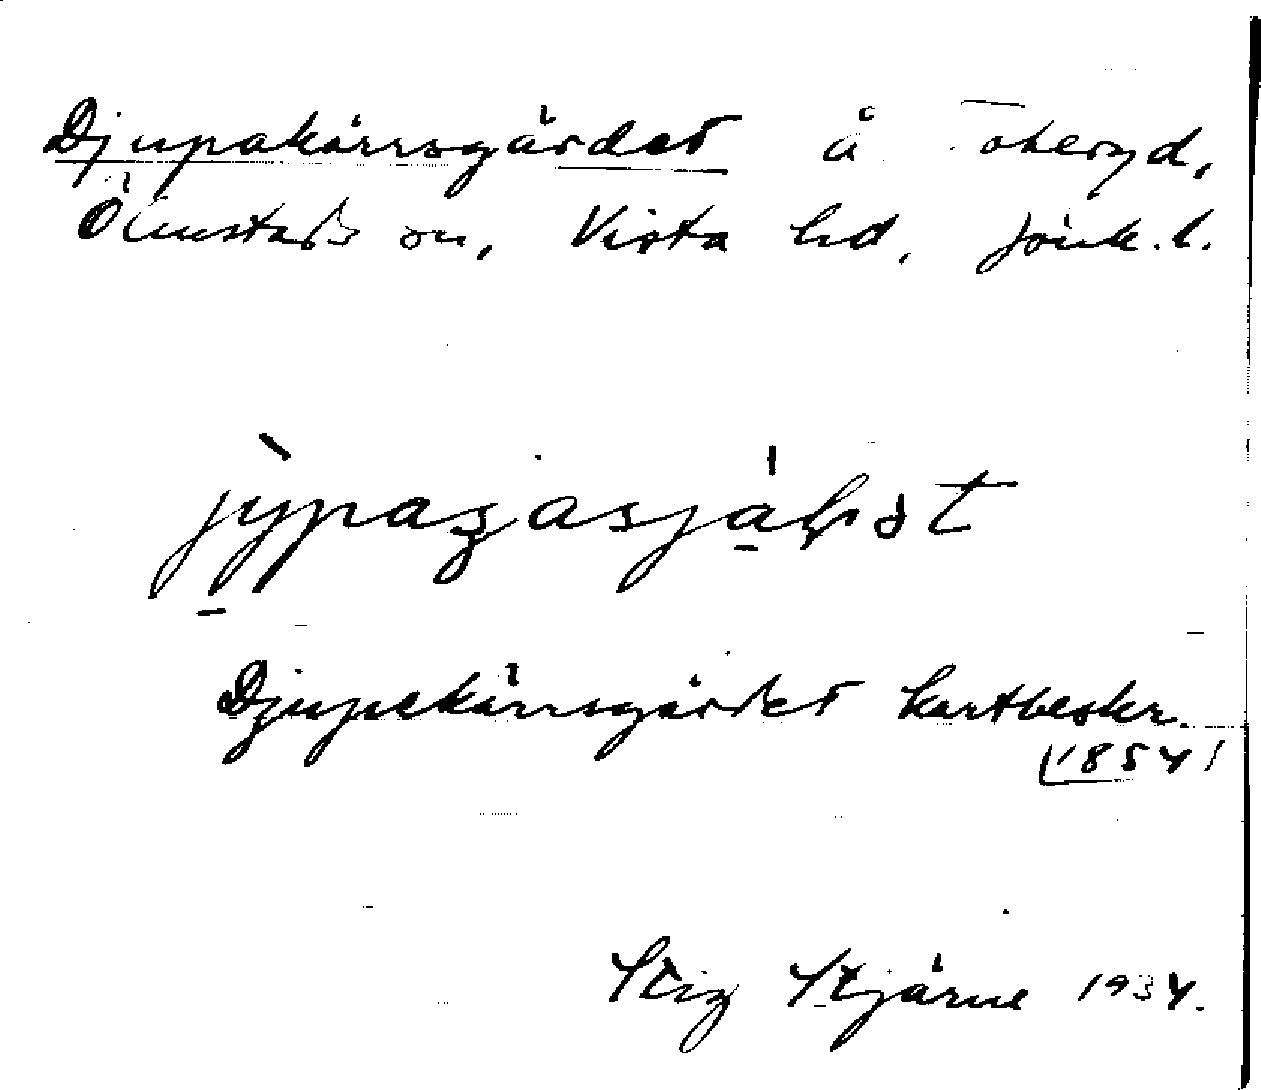 Djupakärrsgärdet å Ökeryd,
Ölmstads sn, Vista hd, Jönk. l.
Djupekärrsgärdet kartbeskr.
1854
Stig Stjärne 1934.